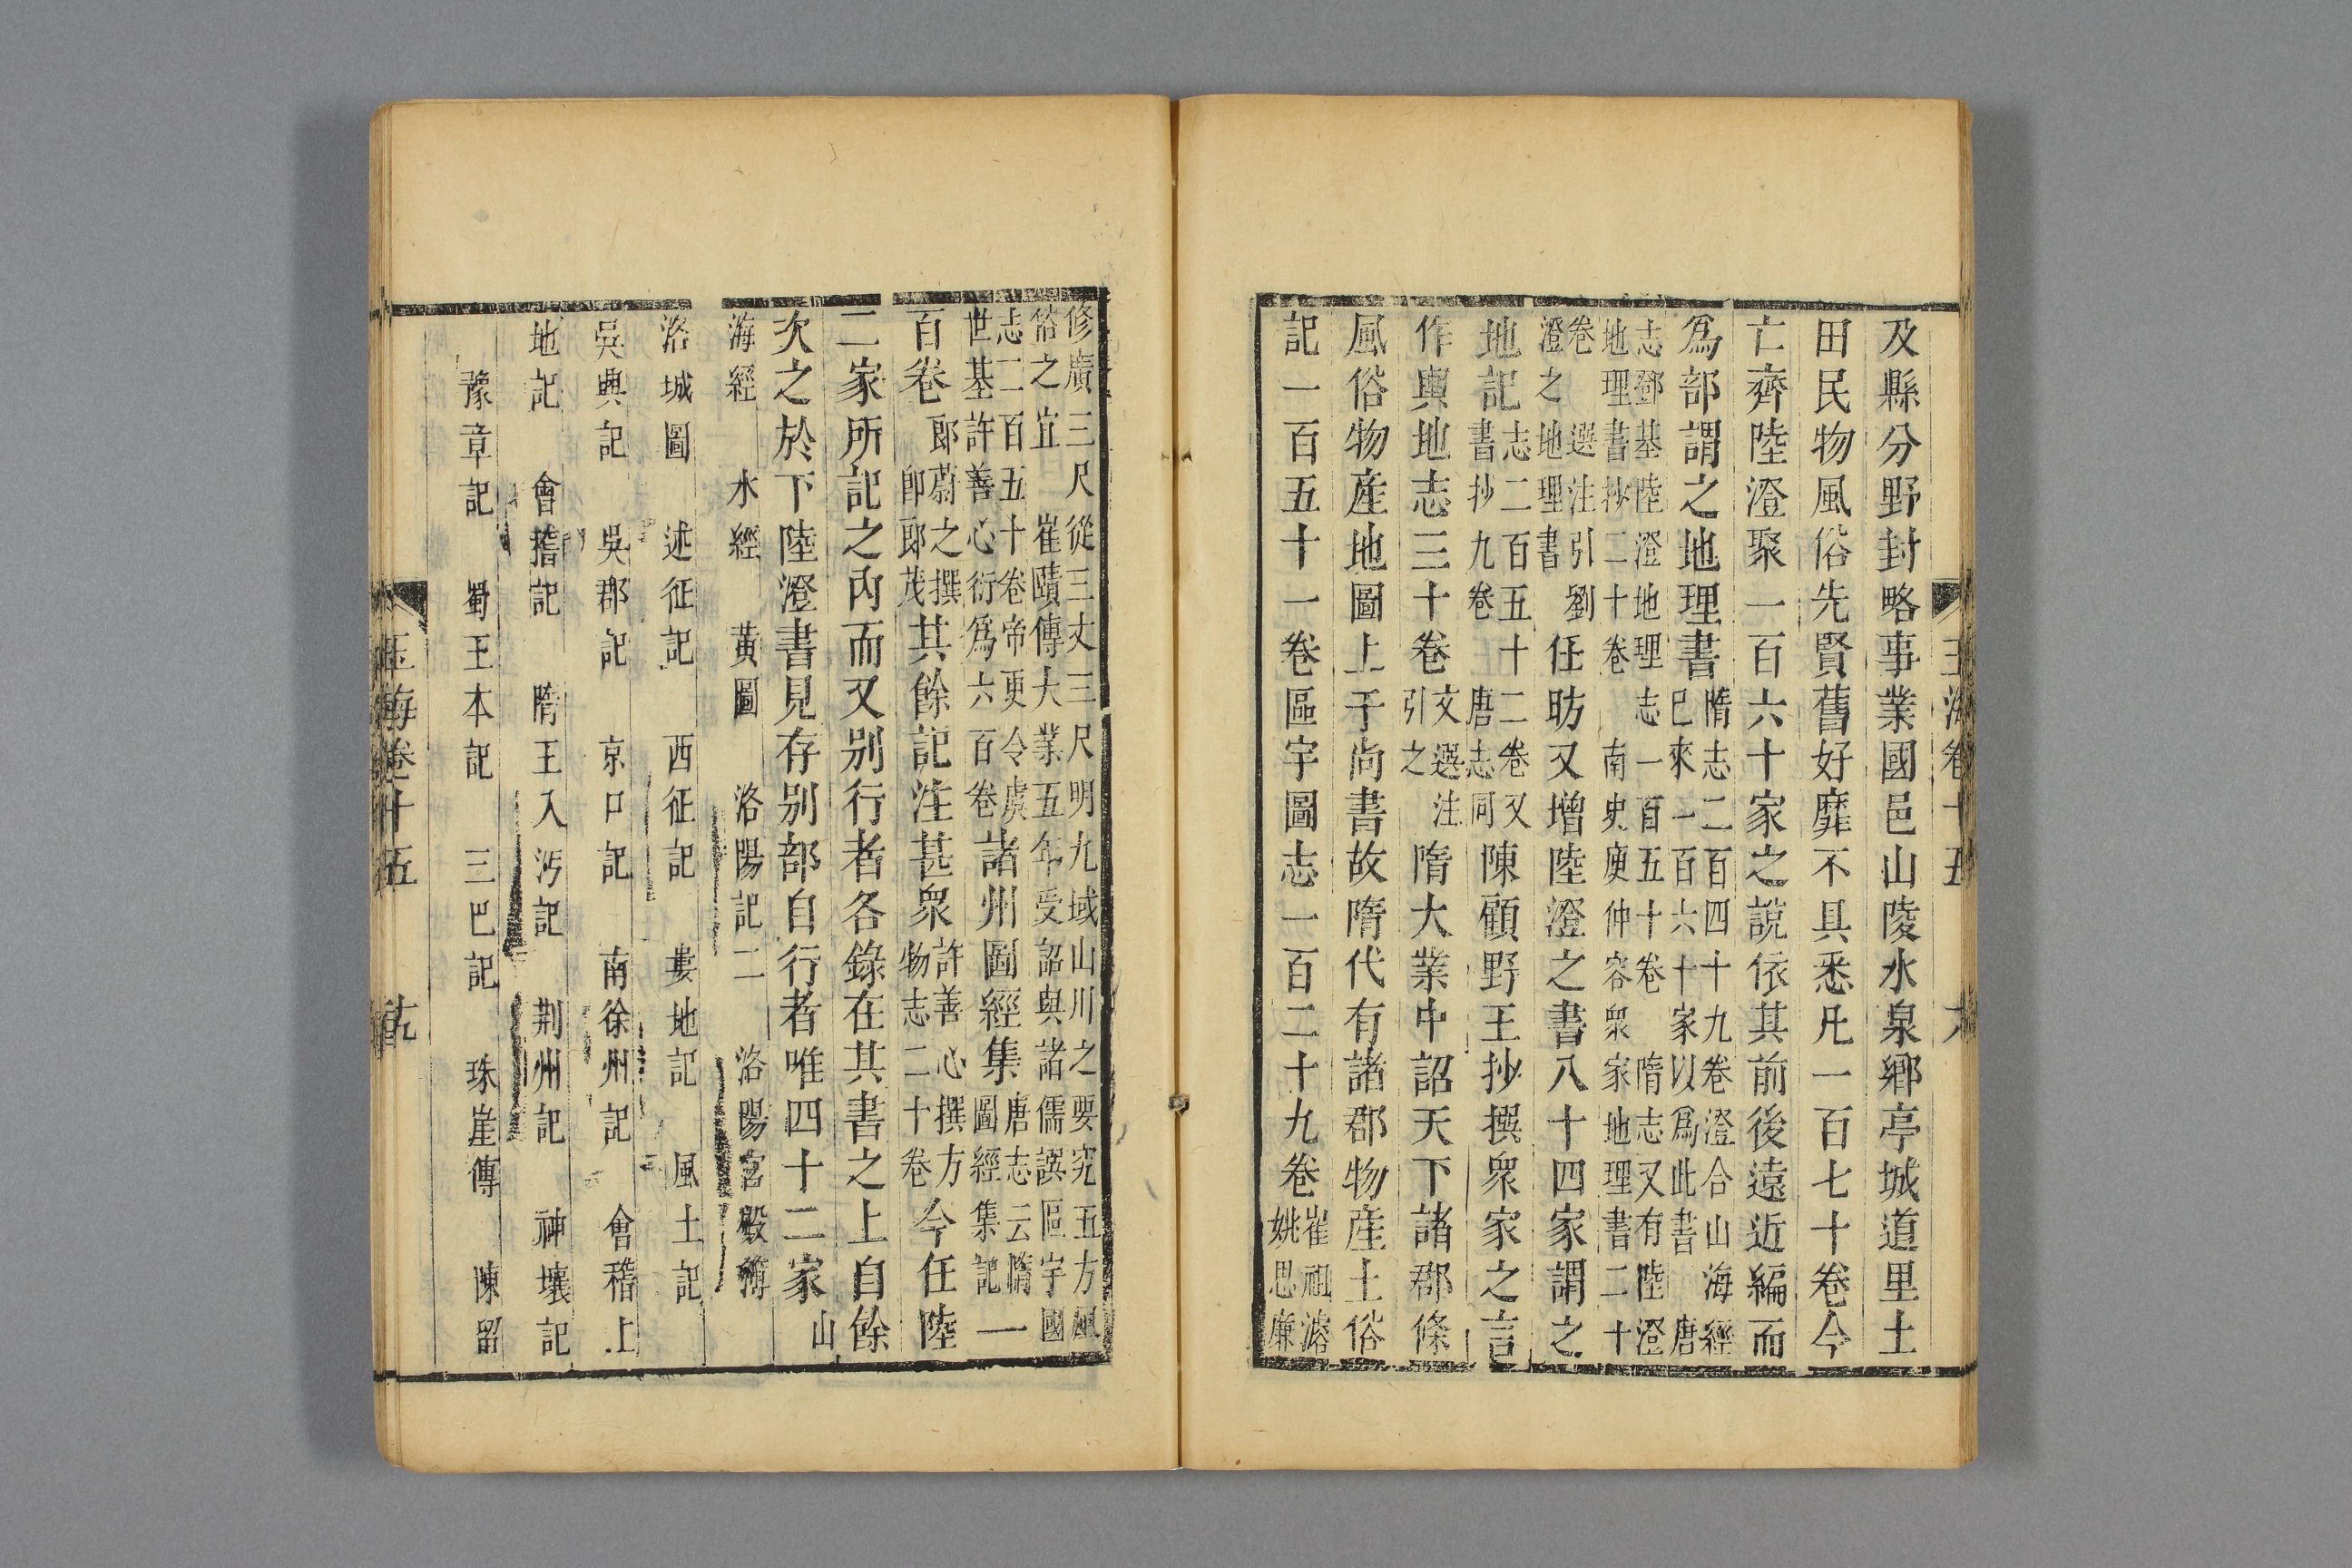 玉海卷十五
及縣分野封略事業國邑山陵水泉鄉亭城道里土
田民物風俗先賢舊好靡不具悉凡一百七十卷今
亡齊陸澄聚一百六十家之說依其前後遠近編而
爲部謂之地理書隋志二百四十九卷澄合山海經
巳來一百六十家以爲此書唐
志鄧基陸澄地理志一百五十卷隋志又有陸澄
地理書抄二十卷南史庾仲容衆家地理書二十
卷選注引劉
澄之地理書任昉又增陸澄之書八十四家謂之
地記志二百五十二卷又
書抄九卷唐志同陳顧野王抄撰衆家之言
作輿地志三十卷文選注
引之隋大業中詔天下諸郡條
風俗物產地圖上于尚書故隋代有諸郡物產土俗
記一百五十一卷區宇圖志一百二十九卷崔祖濬
姚思廉
修廣三尺從三丈三尺明九域山川之要究五方風
俗之宜崔賾傳大業五年受詔與諸儒譔區宇國
志二百五十卷帝更令虞
世基許善心衍爲六百卷諸州圖經集唐志云隋
圖經集記一
百卷郎蔚之撰
卽郎茂其餘記注甚衆許善心撰方
物志二十卷今任陸
二家所記之內而又別行者各錄在其書之上自餘
次之於下陸澄書見存別部自行者唯四十二家山
海經 水經 黃圖 洛陽記二 洛陽宮殿簿
洛城圖 述征記 西征記 婁地記 風土記
吳興記 吳郡記 京口記 南徐州記 會稽土
地記 會稽記 隋王入沔記 荆州記 神壤記
豫章記 蜀王本記 三巴記 珠崖傳 陳留
玉海卷十五